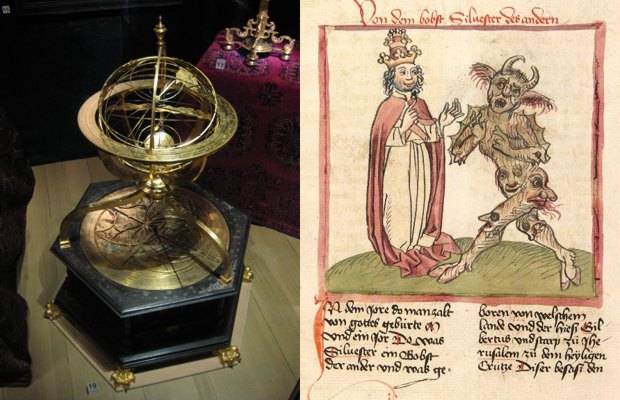 Von dem bobst Siluester des andern
IN dem Jore do man zalt
von gottes gebürte M
vnd ein Jor Do was
Siluester ein Bobst
der ander vnd was ge-
boren von welschem
lande vnd der hieß Gil
bertus vnd starp zu Jhe
rusalem zu dem heyligen
Crütze Diser besaß den
19